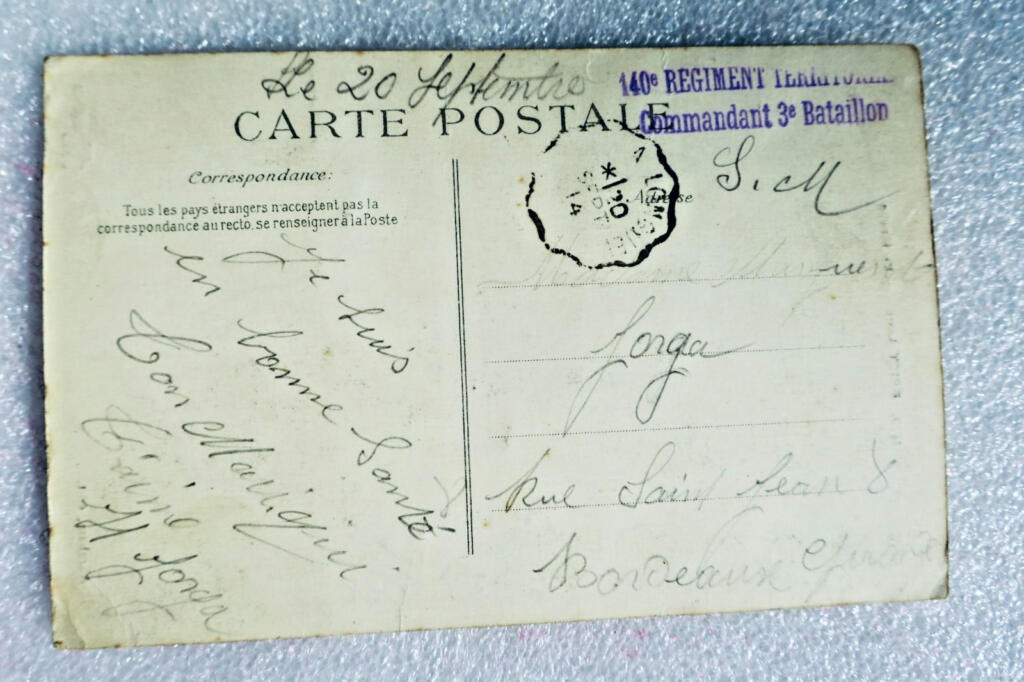 Le 20 Septembre
140e REGIMENT TERRITORIAL
Commandant 3e Bataillon
CARTE POSTALE
S. M
Correspondance:
Adresse
Tous les pays étrangers n'acceptent pas la
correspondance au recto, se renseigner à la Poste
*20
SEPT
14
Je suis
en bonne Santé
Ton Mari qui
t'aime
Jorga
Madame
Jorga
Rue Saint Jean 8
Bordeaux Gironde